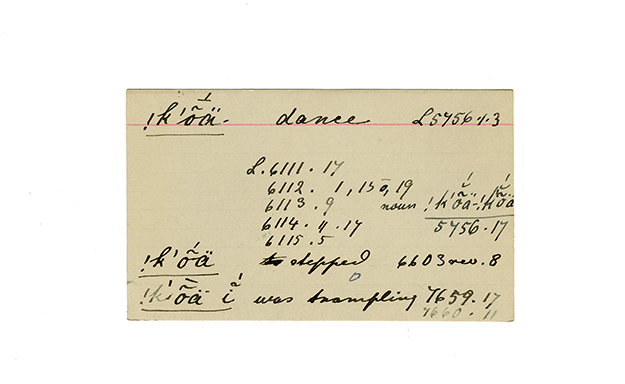 !k'õä- dance L5756.1.3
L. 6111. 17
6112. 1, 15, 19
6113. 9 noun !k'õä-!k'õä
6114. 11. 17 5756.17
6115. 5
!k'óä stepped 6603 rev. 8
!k'õä ĩ was trampling 7659. 17
7660. 11